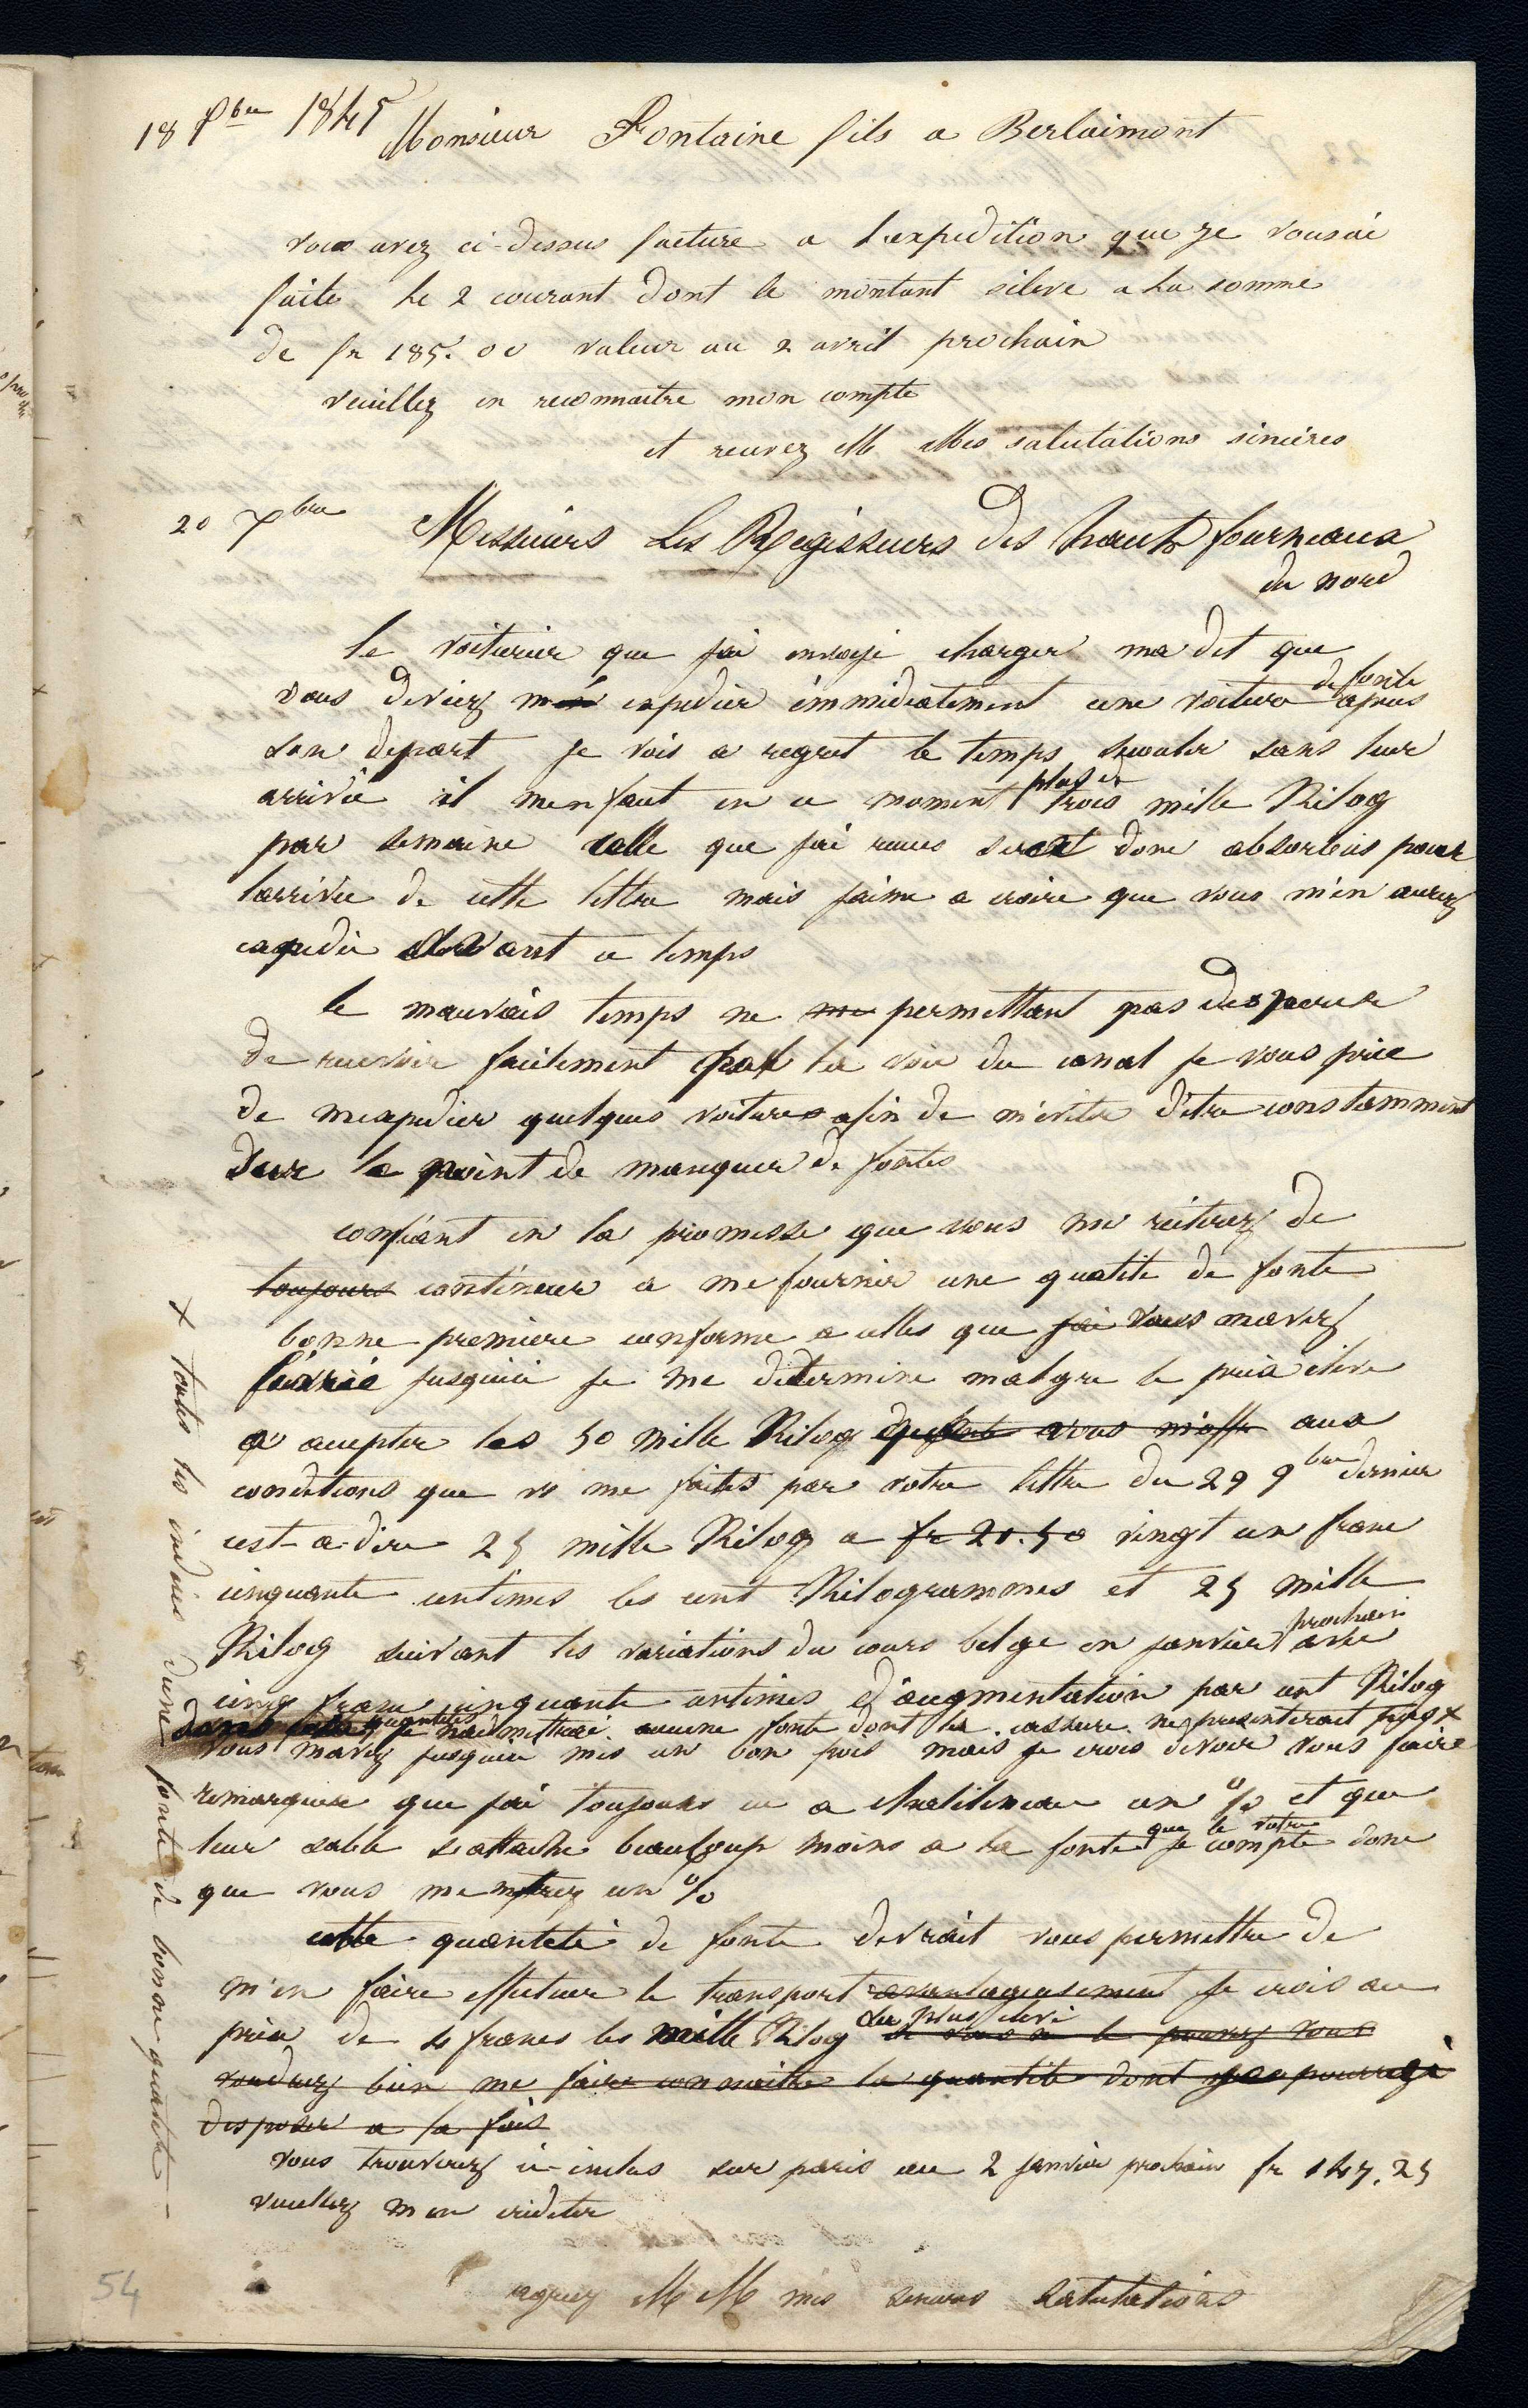 18 Xbre 1845 Monsieur Fontaine fils a Berlaimont
vous avez ci-dessus facture a l'expedition que je vous ai
faite le 2 courant dont le montant s'eleve a la somme
de fr 185.00 valeur au 2 avril prochain
veuillez en reconnaitre mon compte
et recevez M Mes salutations sincères
20 Xbre Messieurs Les Regisseurs des hauts fourneaux
du nord
le voiturier que j'ai envoyé charger ma dit que
vous deviez m'en expedier immediatement une voiture de fonte apres
son depart je vois a regret le temps secouler sans leur
arrivée il men faut en ce moment plus de trois mille Kilog
par semaine celle que j'ai recues serat donc absorbeis pour
larrivée de cette lettre mais jaime a croire que vous m'en aurez
expedié avant a temps
le mauvais temps ne me permettant pas desperer
de recevoir facilement par la voie du canal je vous prie
de mexpedier quelques voitures afin de m'eviter d'etre constamment
sur le point de manquer de fontes
confiant en la promesse que vous me reiterez de
toujours continuer a me fournir une quatite de fonte
bonne premiere conforme a celles que j'ai vous mavez
jusqu'ici je me determine malgre le prix éleve
a accepter les 50 mille Kilog aux
conditions que vs me faites par votre lettre du 29 9bre dernier
cest-a-dire 25 mille Kilog a fr 21.50 vingt un franc
cinquante centimes les cent Kilogrammes et 25 mille
Kilog suivant les variations du cours belge en janvier prochain avec
cinq franc cinquante centimes d'augmentation par cent Kilog
quantités je nadmettrai aucune fonte dont la cassure ne presenterait pas x
vous mavez jusqu'ici mis un bon pois mais je crois devoir vous faire
remarquer que j'ai toujours eu a Chatilineau un % et que
leur sable s'attache beaucoup moins a la fonte que le votre je compte donc
que vous me mettrez un %
cette quantité de fonte devrait vous permettre de
m'en faire effectuer le transport avantageusement je crois au
prix de 4 francs les mille Kilog au plus elevé si vous ne le pouvez vous
voudrez bien me faire connaitre la quantité dont je pourrai
disposer a la fois
vous trouverez ci-inclus sur paris au 2 janvier prochain fr 147.25
veuillez men créditer
agreez MM mes sinceres salutations
x toutes les indices dune fonte de bonne qualité
54